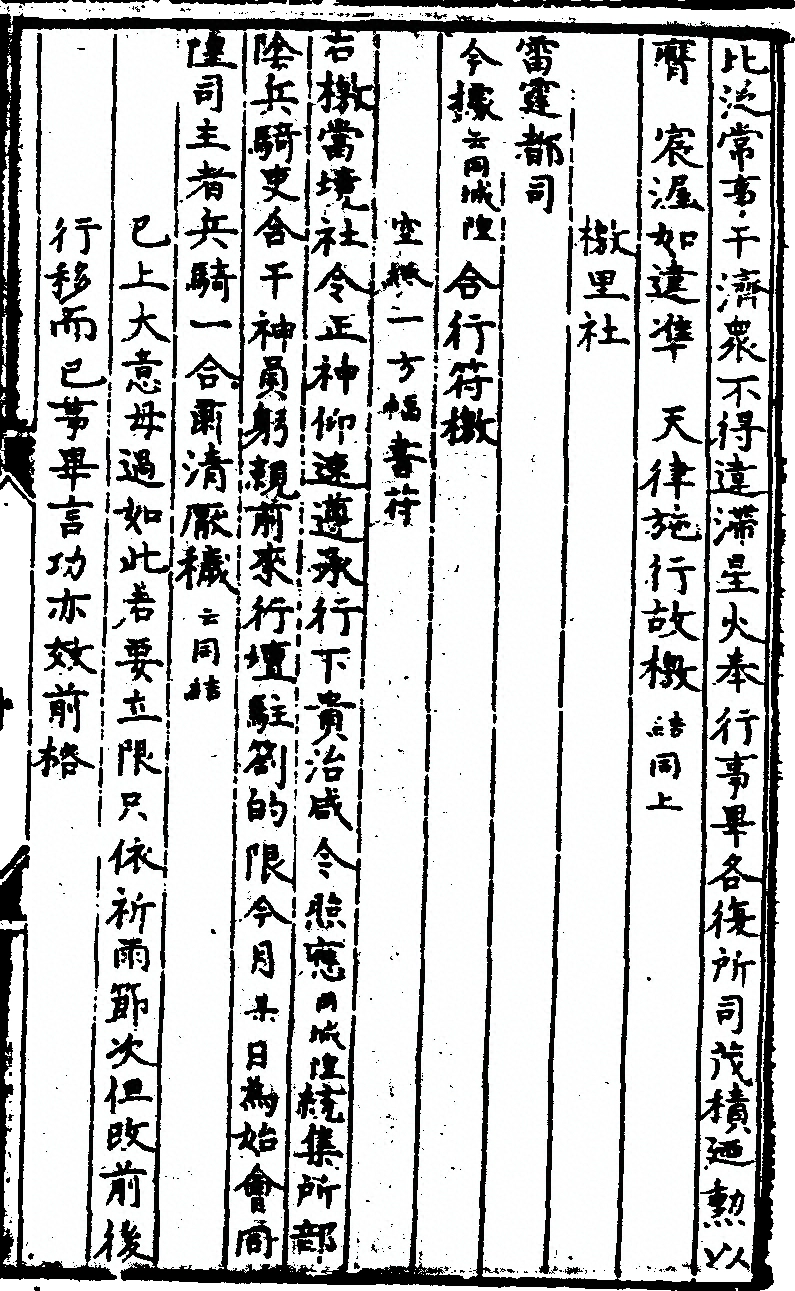 比泛常事干濟衆不得違滯星火奉行事畢各復所司茂積廼勲以
膺　宸渥如違準　天律施行故檄　結同上
檄里社
雷霆都司
今據云同城隍合行符檄
空紙二方幅書符
右檄當境社令正神仰速遵承行下貴治咸令照應同城隍統集所部
陰兵騎吏含干神員躬親前來行壇駐劄的限今月某日為始會同
隍司主者兵騎一合肅清厭穢云同結
已上大意毋過如此若要立限只依祈雨節次但改前後
行移而已苐畢言功亦效前格